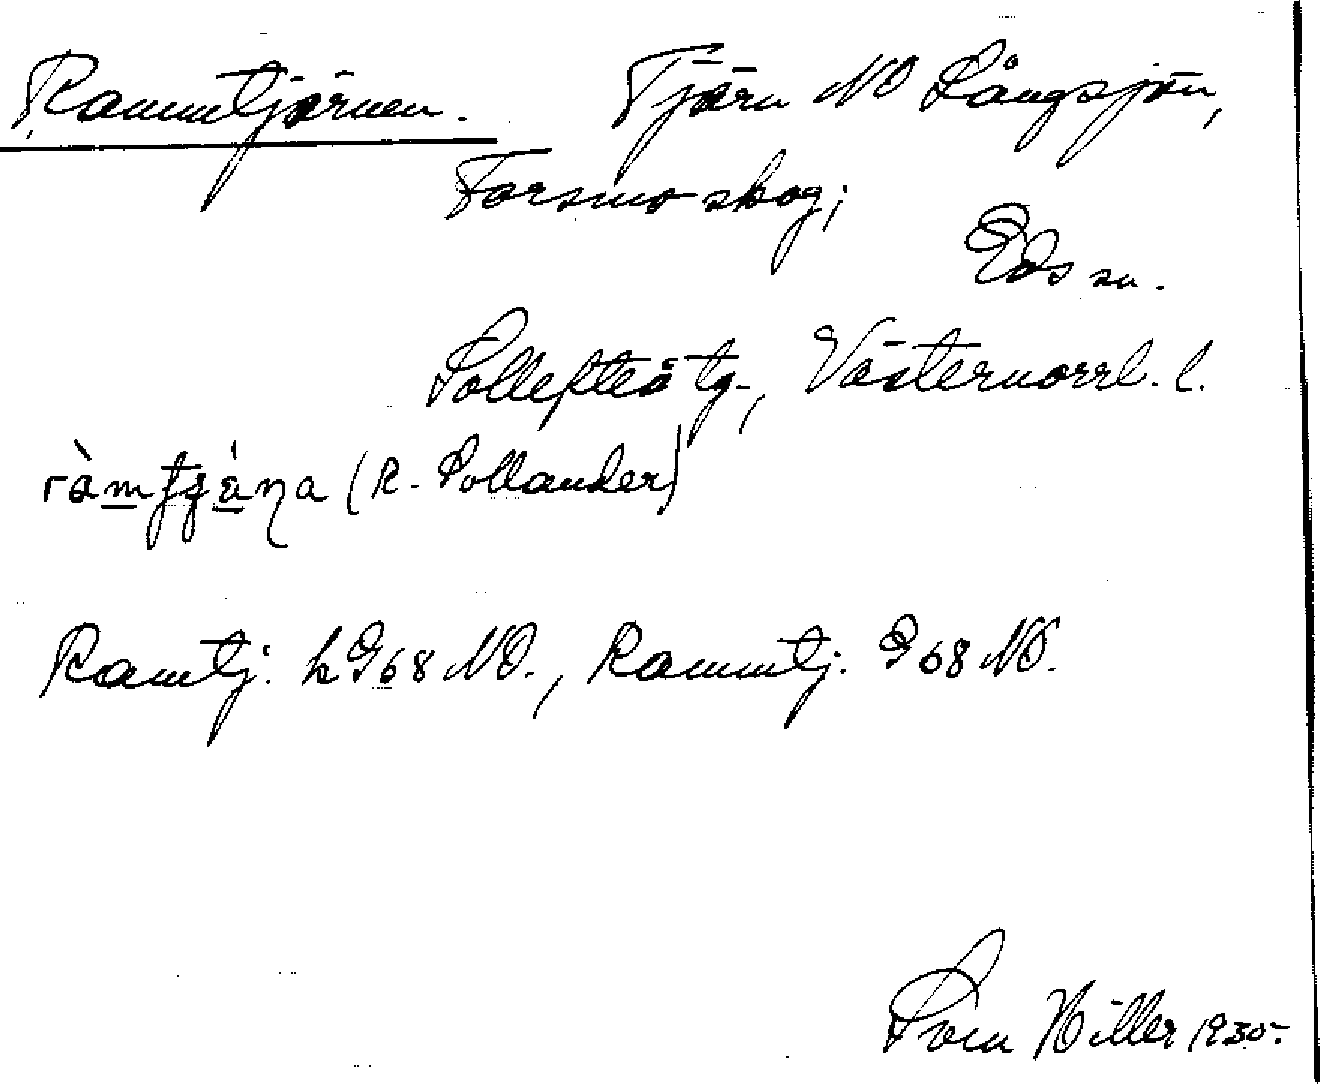 Rammtjärnen. Tjärn NO Långsjön,
Forsmo skog;
Eds sn.
Sollefteå tg., Västernorrl. l.
(R. Sollander)
Ramtj. h G68 NO., Rammtj. G68 NO.
Sven Hiller 1930.